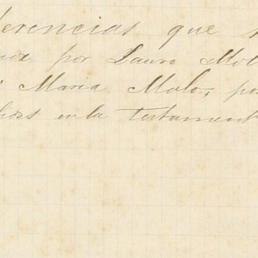 erencias que
por Laura Mol
Maria Malo, po
en la testament